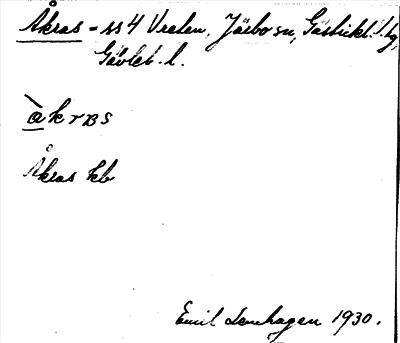 Åkras - ss 4 Vreten, Järbo sn, Gästrikl. V. tg,
Gävleb. l.
àkrBs
Åkras kb
Emil Lenhagen 1930.